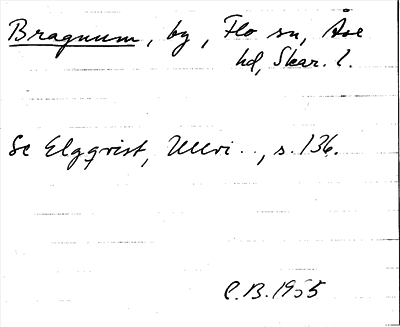 Bragnum, by, Flo sn, Åse
hd, Skar. l.
Se Elgqvist, Ullvi.., s. 136.
C.B. 1955